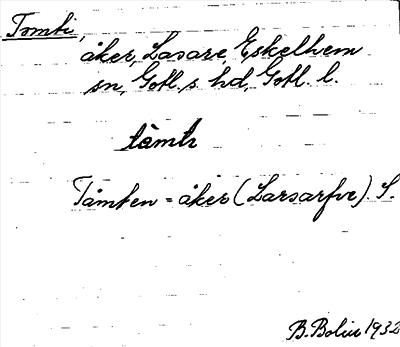 Tomti,
åker, Lasare, Eskelhem
sn, Gotl. s. hd, Gotl. l.
tåmti
Tåmten = åker (Larsarfve). S.
B. Bolin 1932